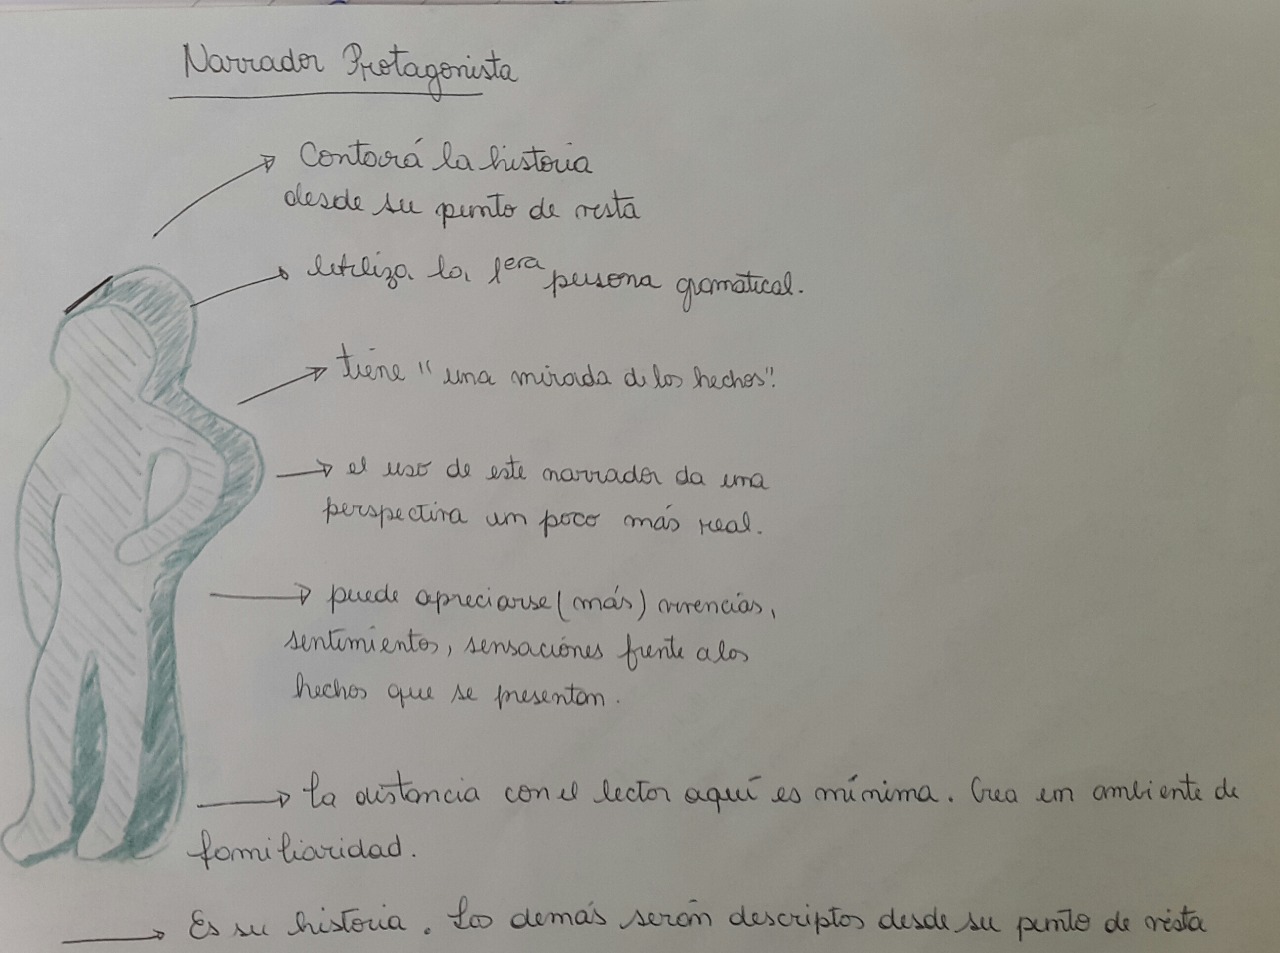 Narrador Protagonista
Contará la historia
desde su punto de vista
Utiliza la 1era persona gramatical.
tiene "una mirada de los hechos".
el uso de este narrador da una
perspectiva un poco más real.
puede apreciarse (más) vivencias,
sentimientos, sensaciones frente a los
hechos que se presentan.
La distancia con el lector aquí es mínima. Crea un ambiente de
familiaridad.
Es su historia. Los demás serán descriptos desde su punto de vista